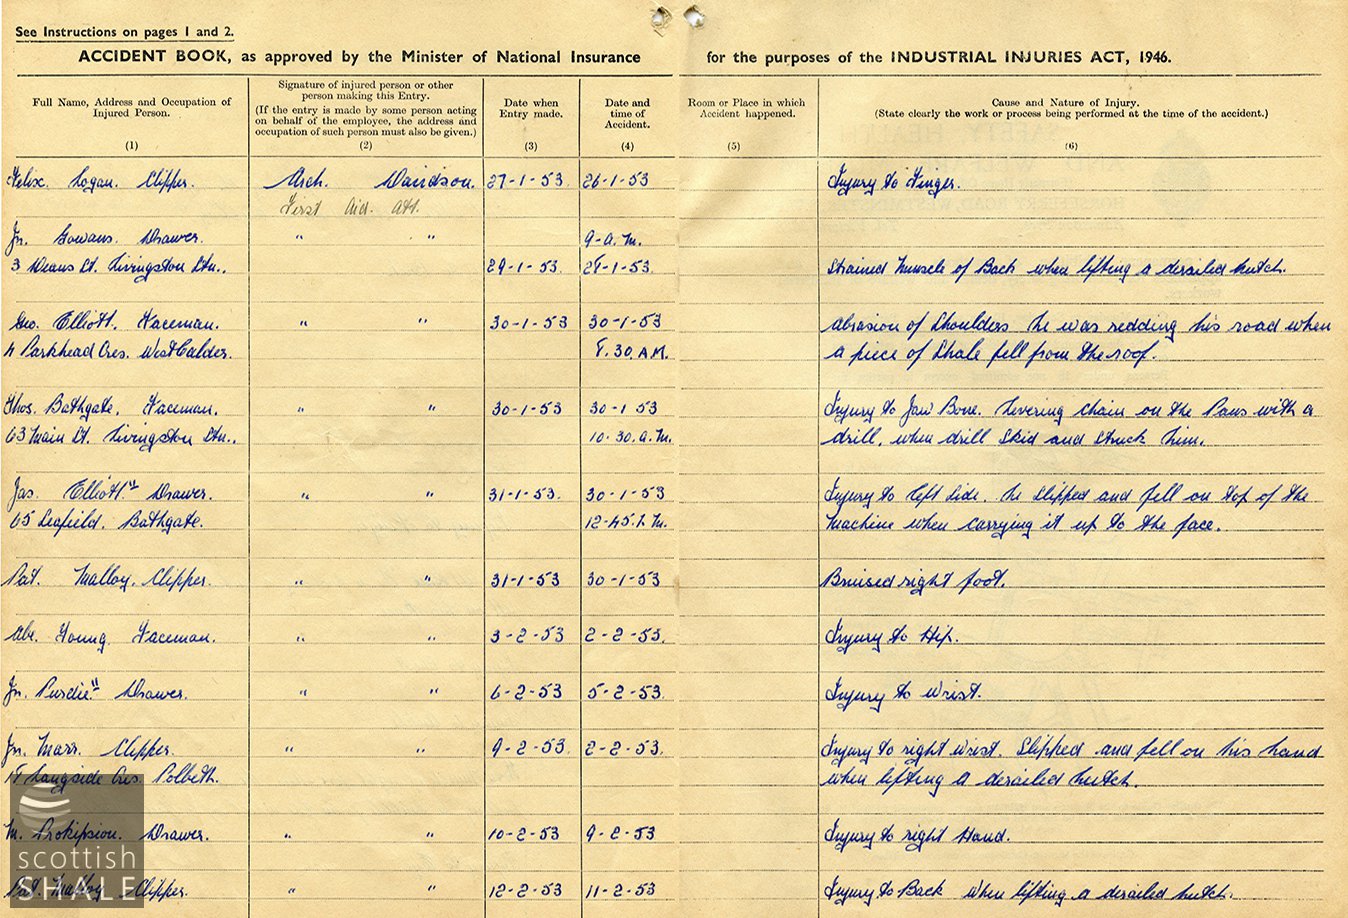 See Instructions on pages 1 and 2.
ACCIDENT BOOK, as approved by the Minister of National Insurance for the purposes of the INDUSTRIAL INJURIES ACT, 1946.
Full Name, Address and Occupation of Injured Person.
(1)
Signature of injured person or other person making this Entry.
(If the entry is made by some person acting on behalf of the employee, the address and occupation of such person must also be given.)
(2)
Date when Entry made.
(3)
Date and time of Accident.
(4)
Room or Place in which Accident happened.
(5)
Cause and Nature of Injury.
(State clearly the work or process being performed at the time of the accident.)
(6)
Felix. Logan. Clipper. Arch. Davidson. 27-1-53 26-1-53 Injury to Finger.
First Aid. Att.
Jn. Gowans. Drawer. " " 9-a.m.
3 Deans St. Livingston Stn.. 29-1-53. 28-1-53. Strained muscle of Back when lifting a derailed hutch.
Geo. Elliott. Faceman. " " 30-1-53 30-1-53 Abrasion of Shoulders he was redding his road when
4 Parkhead Cres. West Calder. 8.30. A.M. a piece of Shale fell from the roof.
Thos. Bathgate. Faceman. " " 30-1-53 30-1-53 Injury to Jaw Bone. Levering chain on the Pans with a
63 Main St. Livingston Stn.. 10.30.a.m. drill, when drill skid and struck him.
Jas. Elliott. Drawer. " " 31-1-53. 30-1-53 Injury to left side. he slipped and fell on top of the
65 Leafield. Bathgate. 12-45.P.M. machine when carrying it up to the face.
Pat. Malloy. Clipper. " " 31-1-53 30-1-53 Bruised right foot.
Abe. Young. Faceman. " " 3-2-53 2-2-53. Injury to Hip.
Jn. Purdie. Drawer. " " 6-2-53 5-2-53. Injury to wrist.
Jn. Marr. Clipper. " " 9-2-53. 2-2-53. Injury to right wrist. Slipped and fell on his hand
18 Langside Cres Polbeth. when lifting a derailed hutch.
M. Prokipsion. Drawer. " " 10-2-53 9-2-53 Injury to right Hand.
Pat. Malloy Clipper. " " 12-2-53 11-2-53 Injury to Back when lifting a derailed hutch.
scottish
SHALE